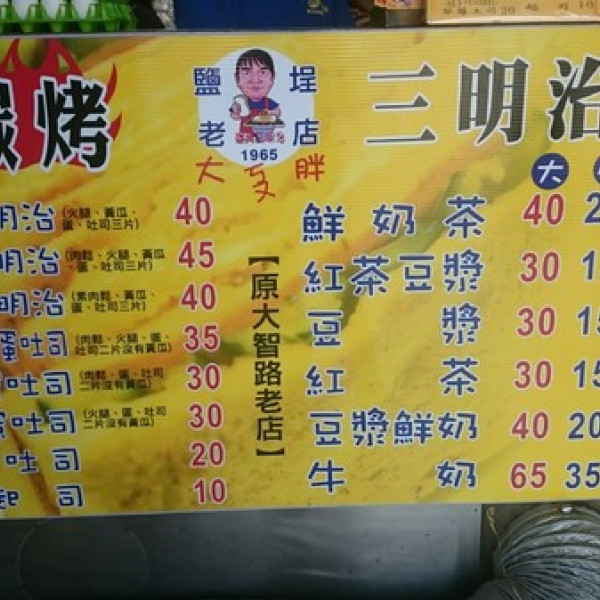 炭烤
鹽埕
老店
1965
大胖
三明治
大
明治(火腿、黃瓜、蛋、吐司三片) 40
明治(肉鬆、火腿、黃瓜、蛋、吐司三片) 45
明治(素肉鬆、黃瓜、蛋、吐司三片) 40
蛋吐司(肉鬆、火腿、蛋、吐司二片沒有黃瓜) 35
吐司(肉鬆、蛋、吐司二片沒有黃瓜) 30
蛋吐司(火腿、蛋、吐司二片沒有黃瓜) 30
吐司 20
起司 10
【原大智路老店】
鮮奶茶 40 2
紅茶豆漿 30 1
豆漿 30 15
紅茶 30 15
豆漿鮮奶 40 20
牛奶 65 35